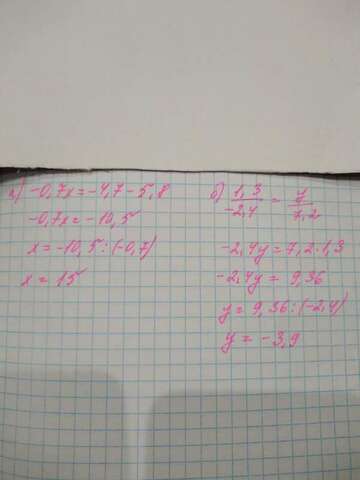 а) -0,7x = -4,7 - 5,8
-0,7x = -10,5
x = -10,5 : (-0,7)
x = 15
б) 1,3/-2,4 = y/7,2
-2,4y = 7,2 · 1,3
-2,4y = 9,36
y = 9,36 : (-2,4)
y = -3,9